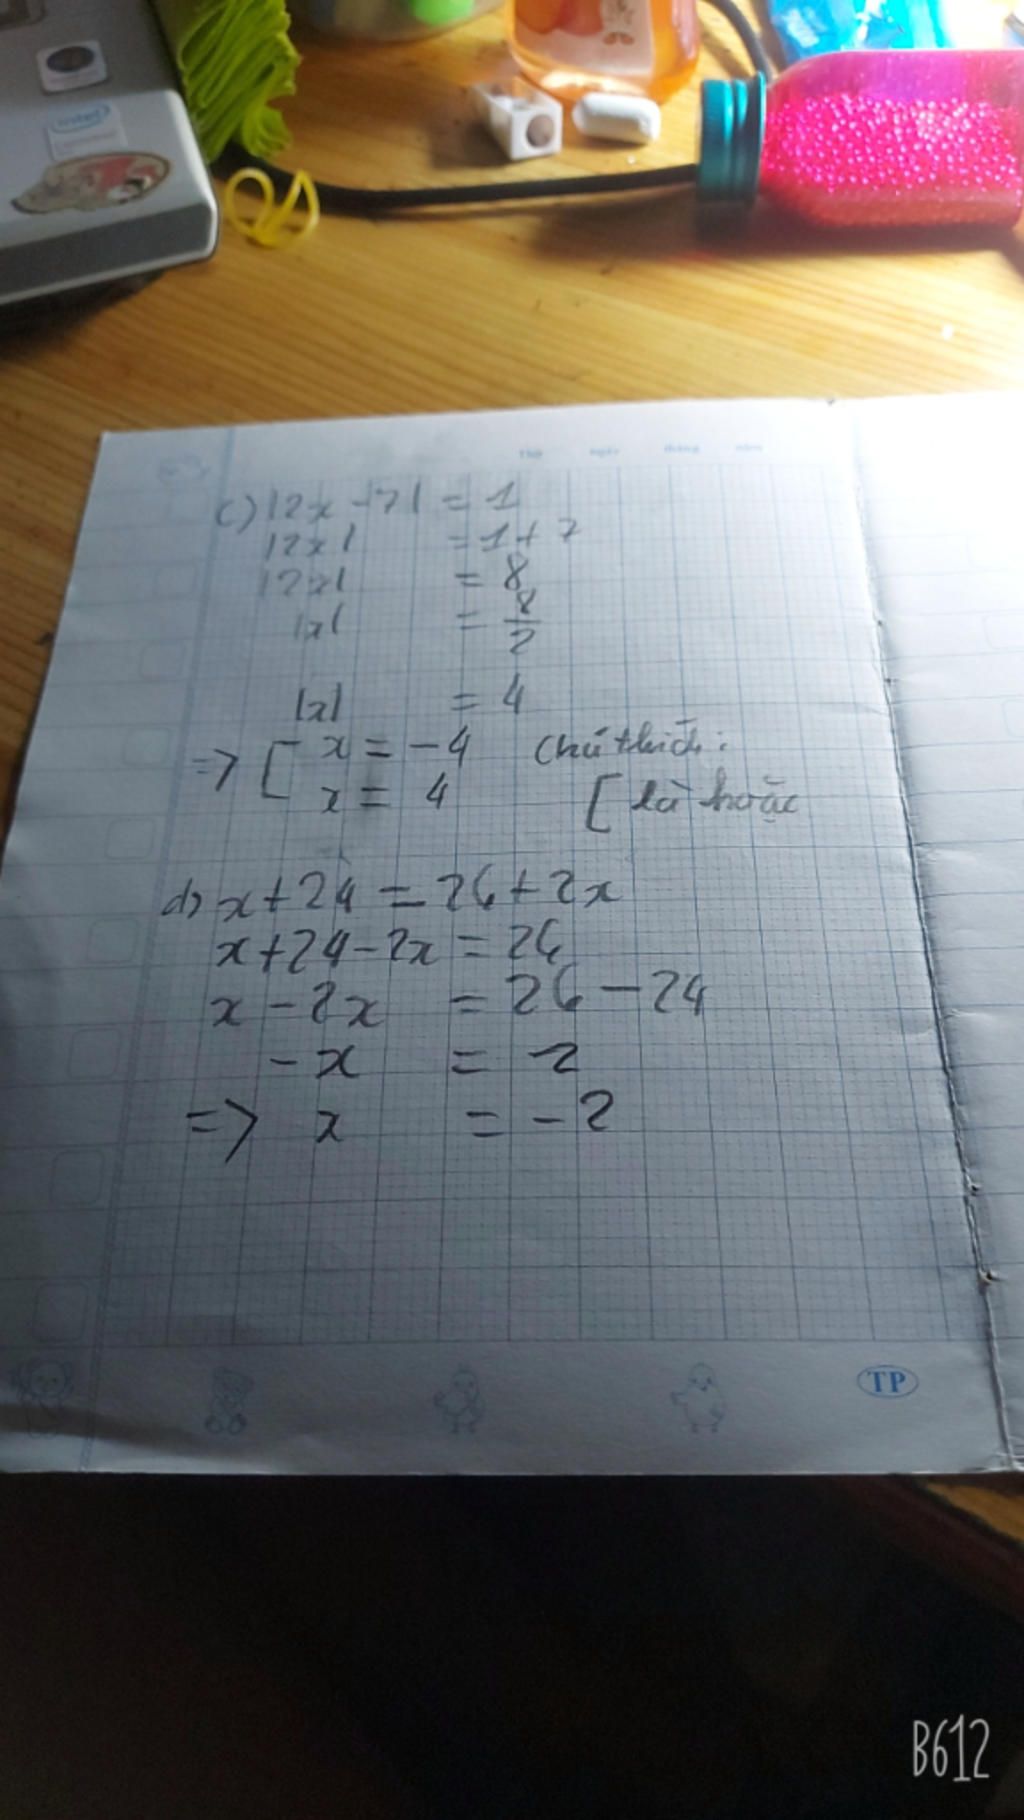 intel
Thứ ngày tháng năm
c) |2x - 7| = 1
|2x| = 1 + 7
|2x| = 8
|x| = 8/2
|x| = 4
=> [ x = -4 Chú thích:
x = 4 [ là hoặc
d) x + 24 = 26 + 2x
x + 24 - 2x = 26
x - 2x = 26 - 24
-x = 2
=> x = -2
TP
B612